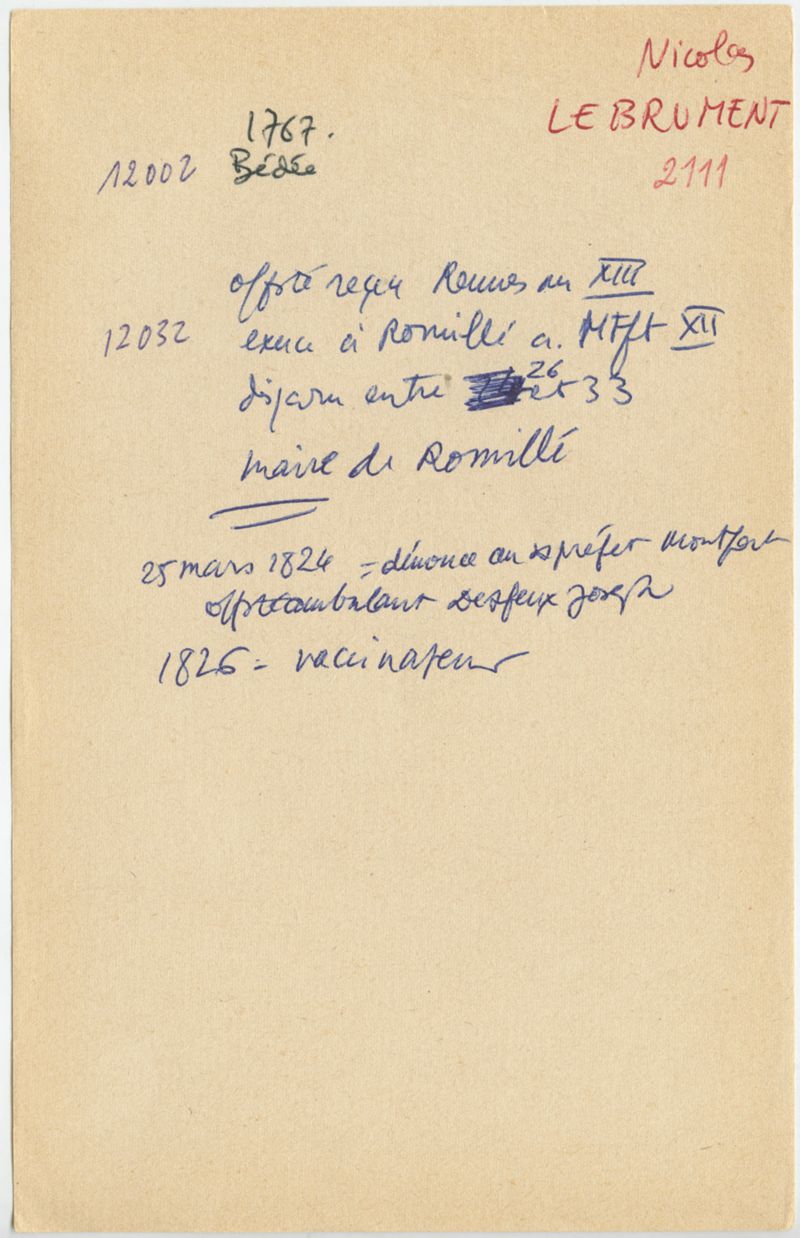 Nicolas
LE BRUMENT
2111
1767.
12002 Bédée
offsté reçu Rennes an XIII
12032 exerce à Romillé a. MTft XII
disparu entre 26 et 33
maire de Romillé
25 mars 1824 = dénonce au s préfet Montfort
offste ambulant Desfeux Joseph
1826 = vaccinateur